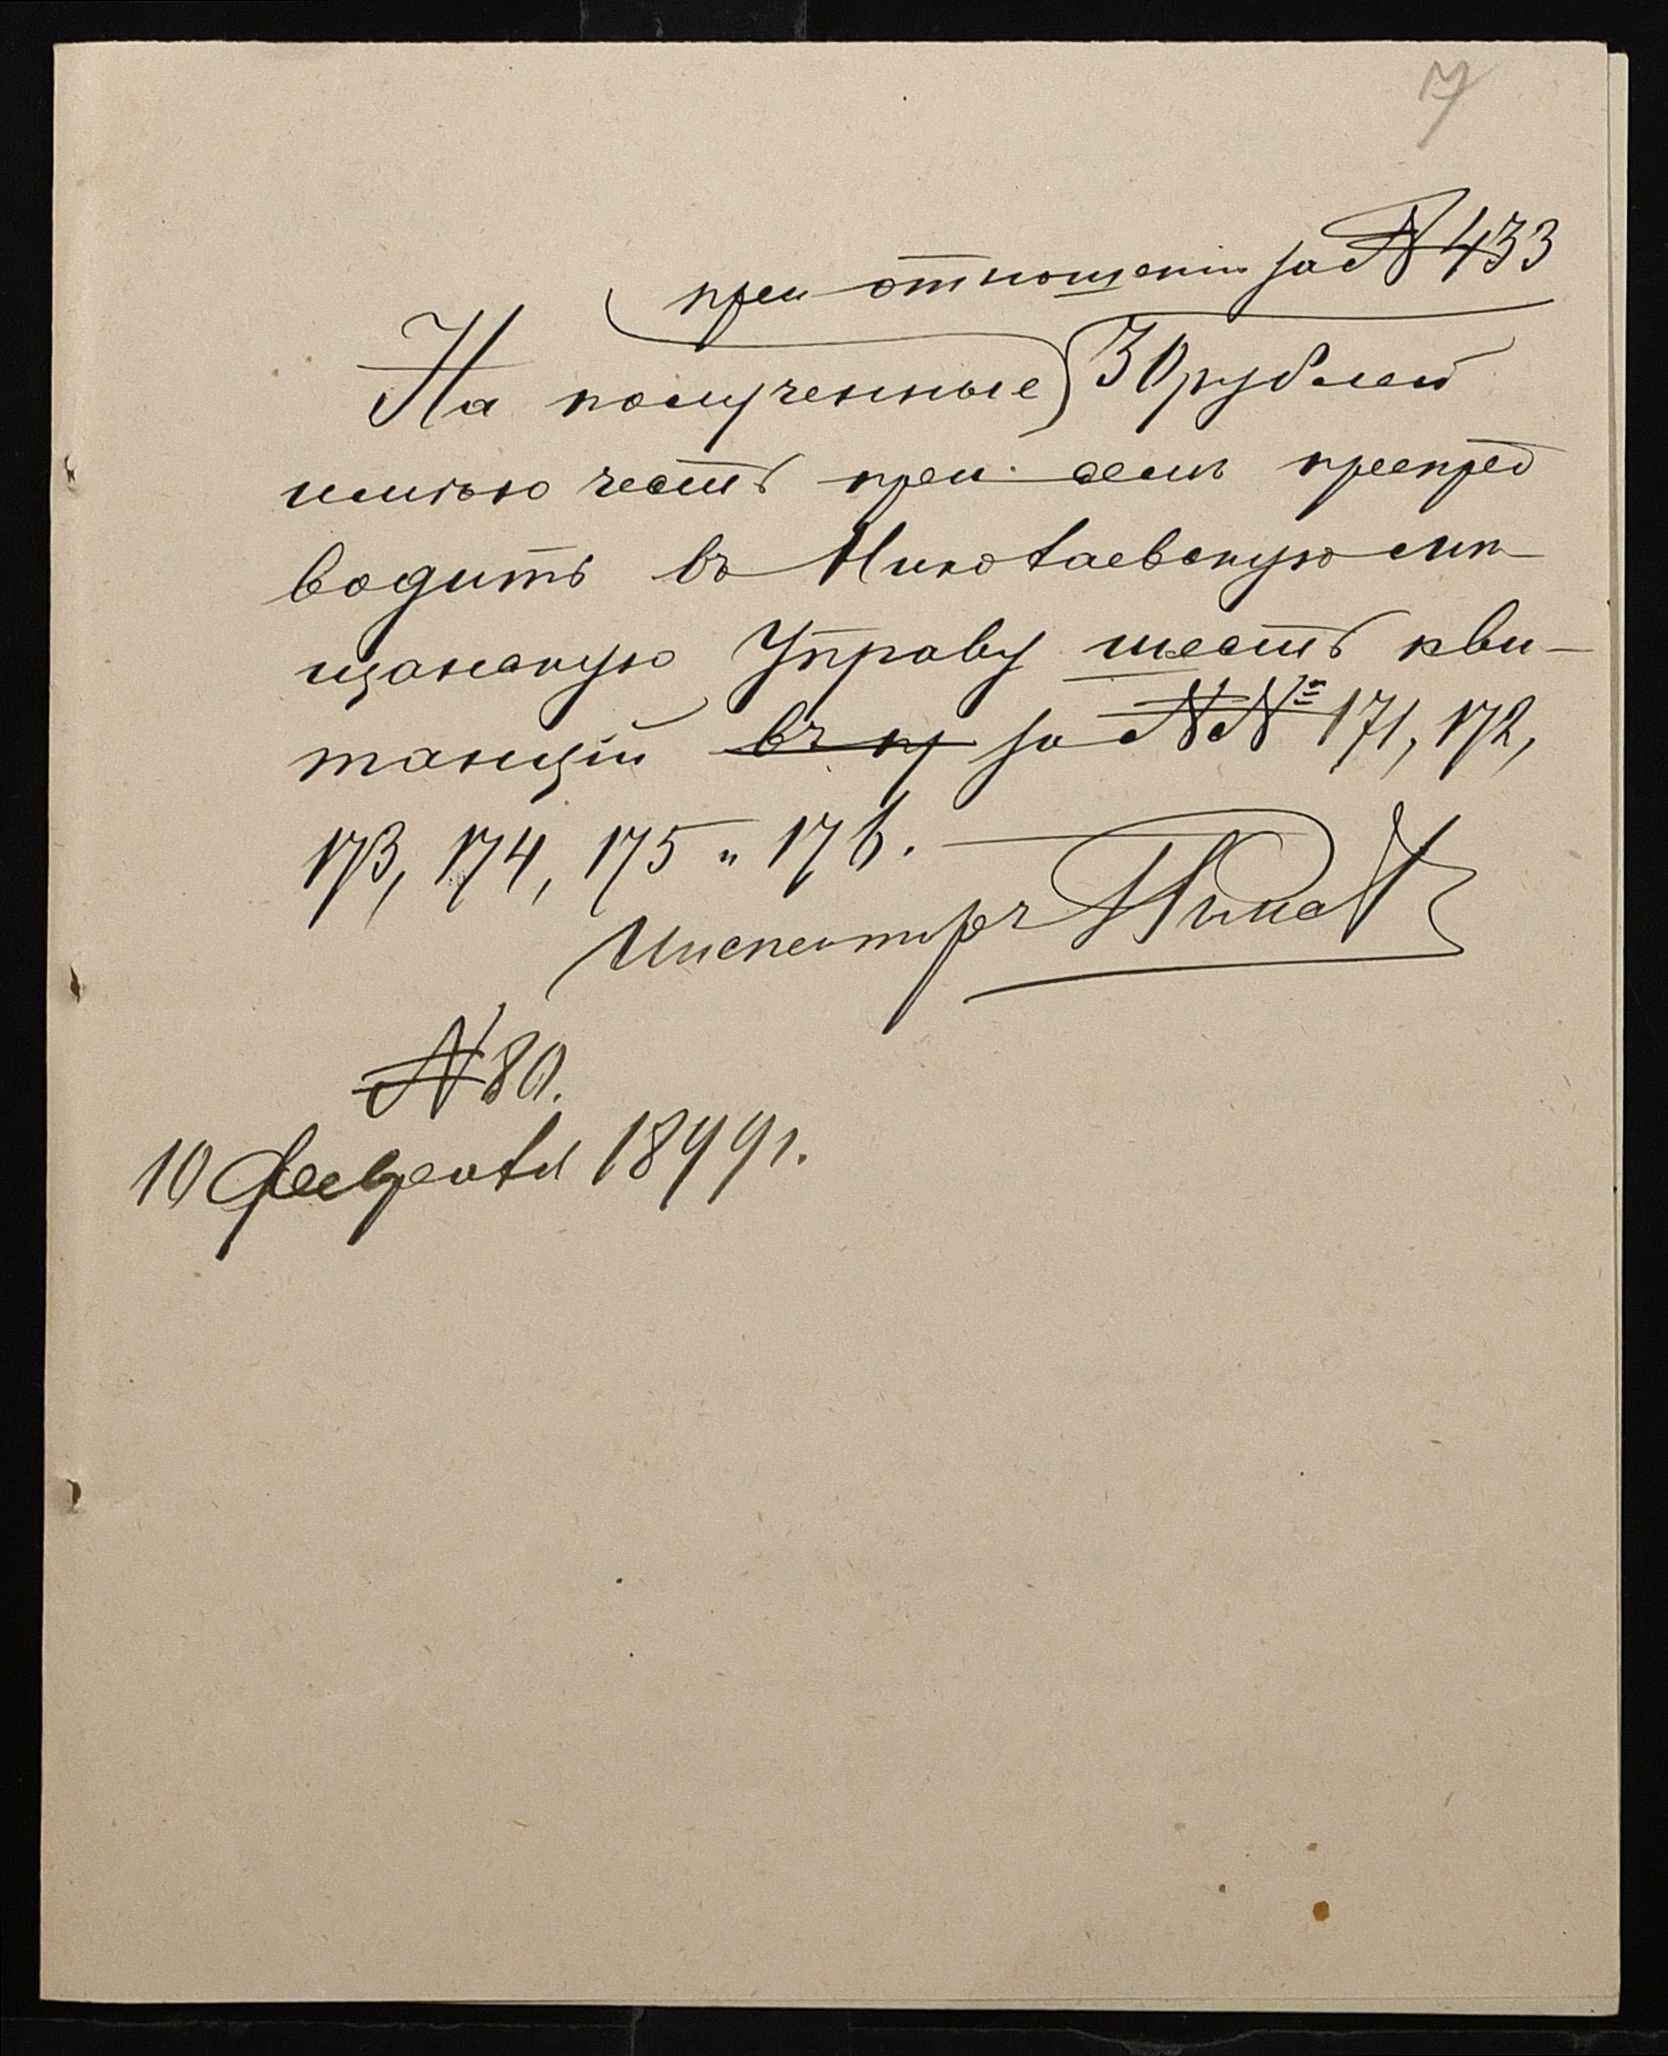 7
при отношенiи за № 433
На полученные 30 рублей
имѣю честь при семъ препро
водить въ Николаевскую мѣ
щанскую Управу шесть кви-
танцiй въ ку за №№ 171, 172,
173, 174, 175 и 176.
Инспекторъ
№ 80.
10 февраля 1899 г.